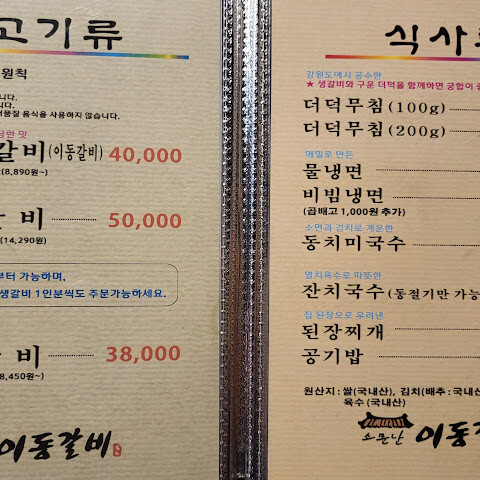 고기류
원칙
니다.
니다.
품질 음식을 사용하지 않습니다.
한 맛
갈비(이동갈비) 40,000
(8,890원~)
갈 비 50,000
(14,290원)
부터 가능하며,
생갈비 1인분씩도 주문가능하세요.
비 38,000
8,450원~)
이동갈비
식사
강원도에서 공수한
★ 생갈비와 구운 더덕을 함께하면 궁합이
더덕무침(100g)
더덕무침(200g)
메밀로 만든
물냉면
비빔냉면
(곱배고 1,000원 추가)
소면과 김치로 개운한
동치미국수
멸치육수로 따뜻한
잔치국수(동절기만 가능
집 된장으로 우려낸
된장찌개
공기밥
원산지 : 쌀(국내산), 김치(배추 : 국내산
육수(국내산)
소문난 이동